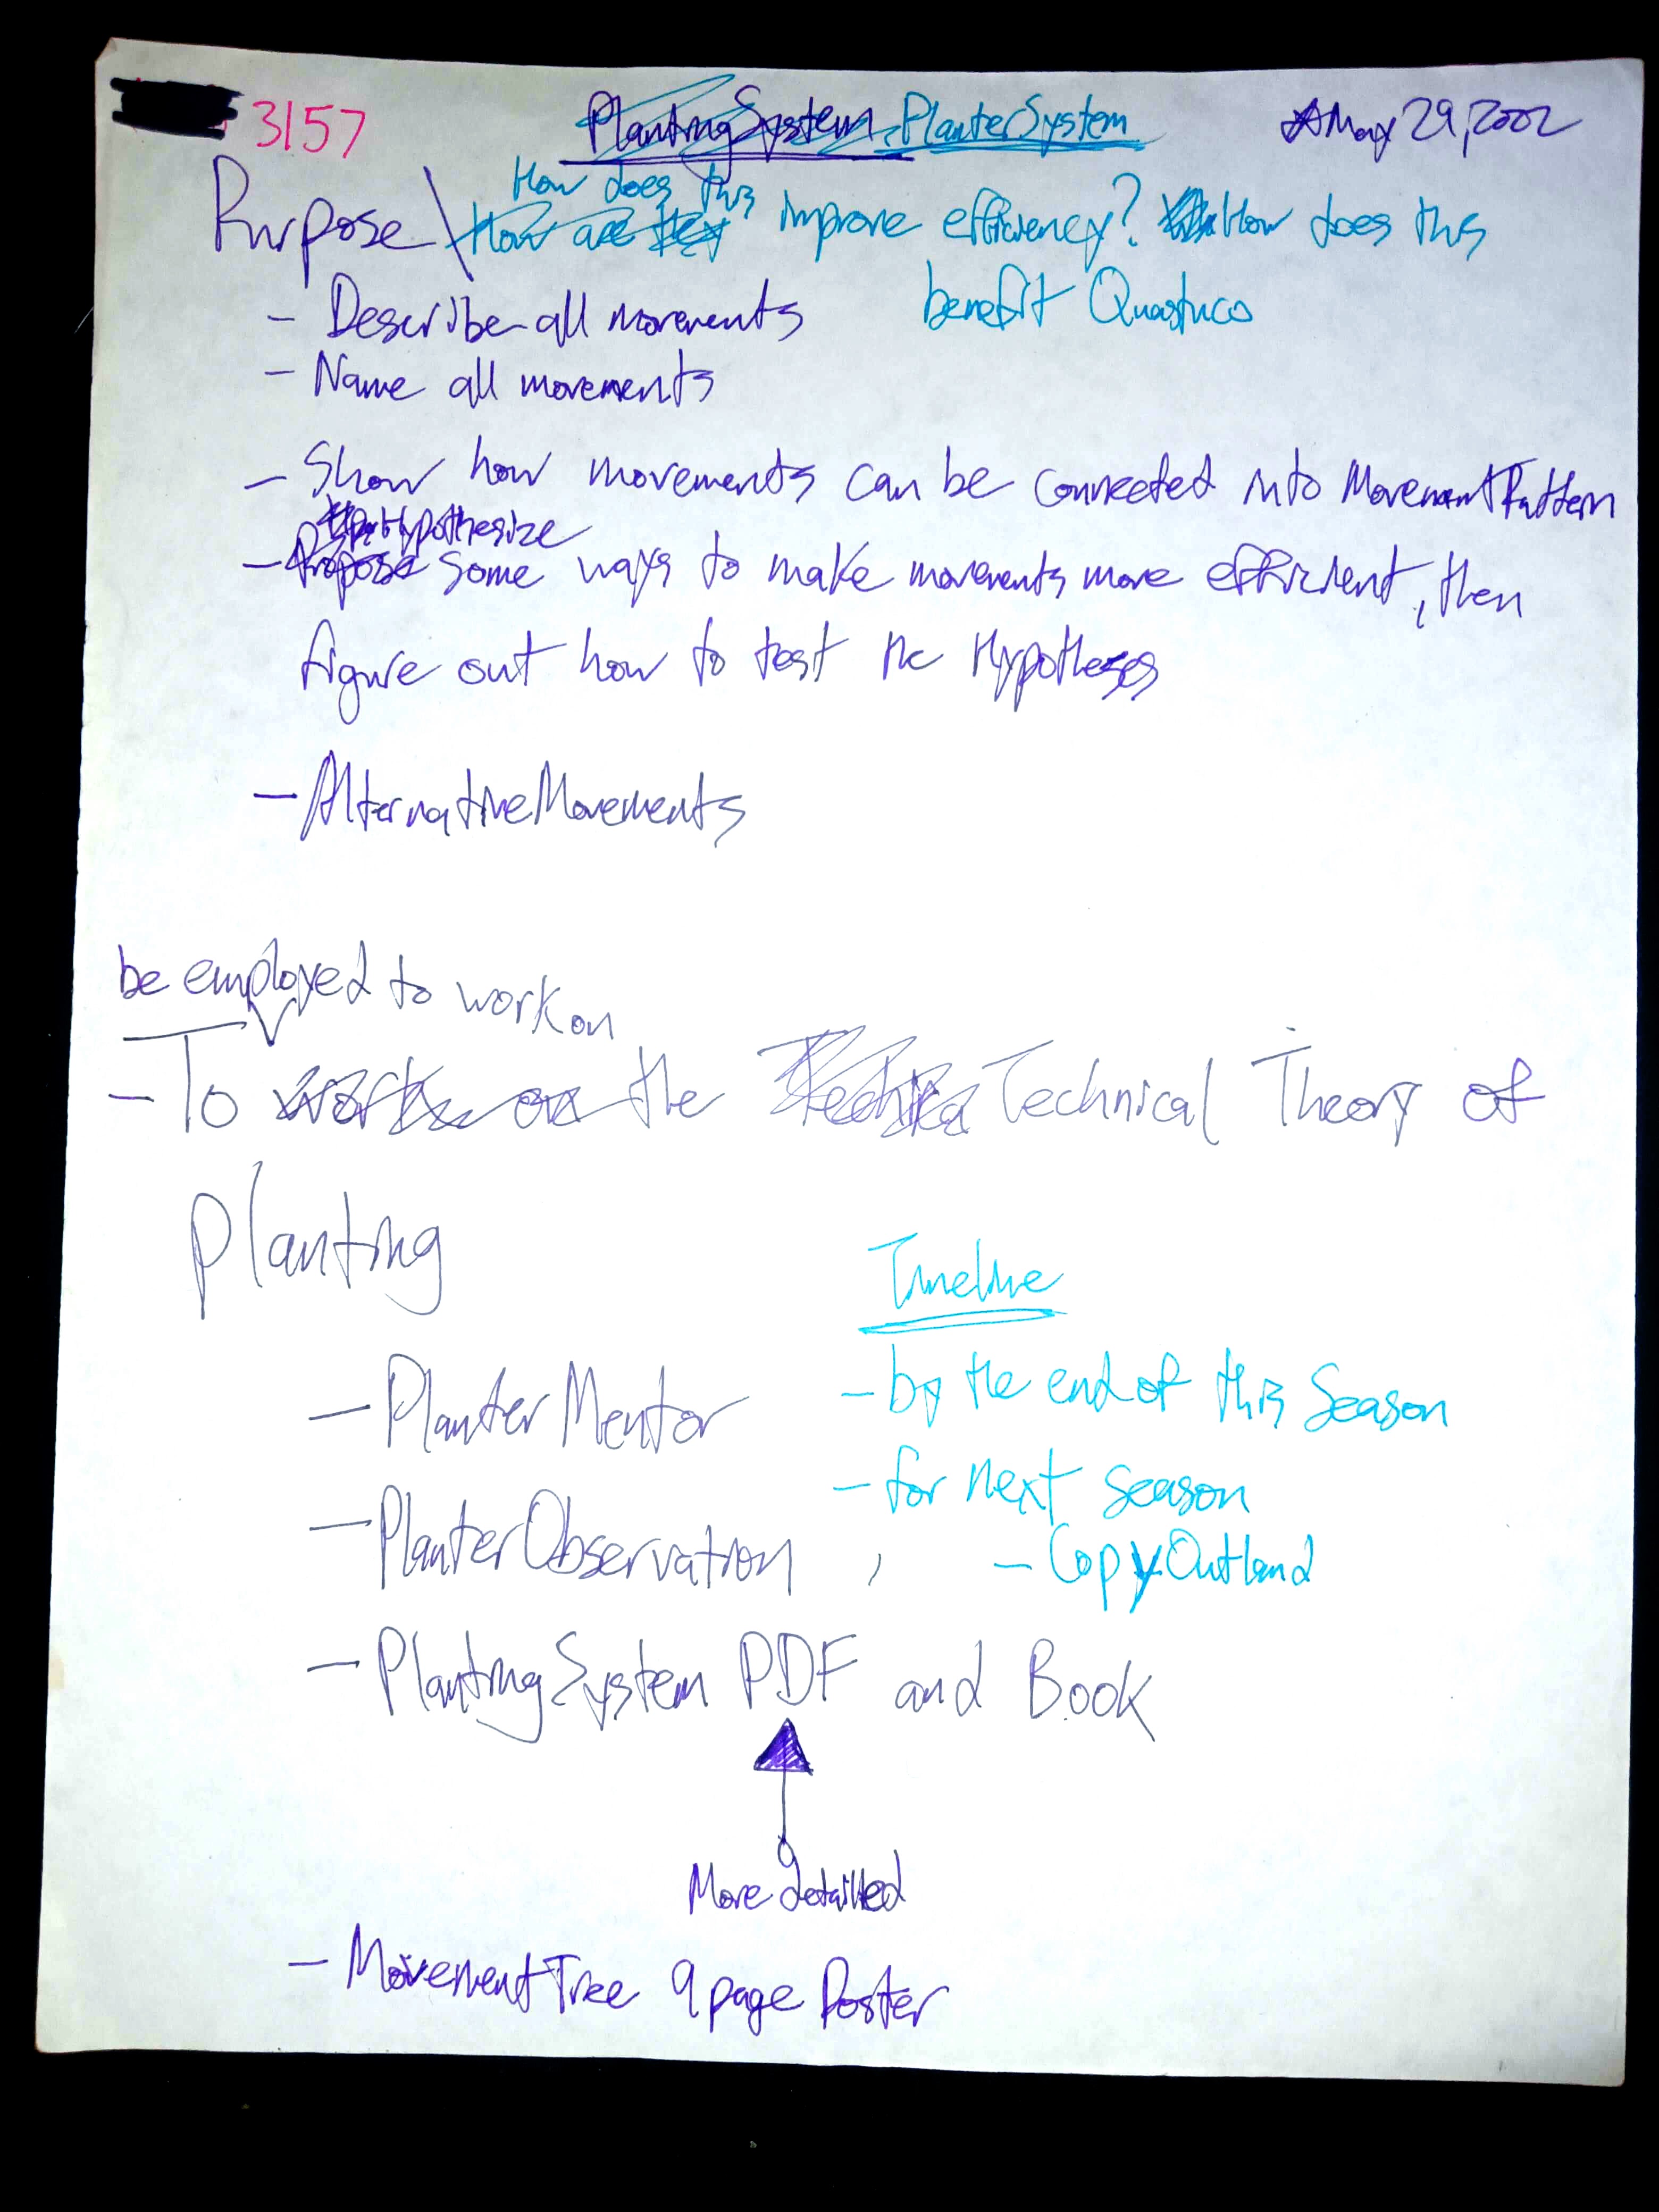 3157 PlantingSystem PlanterSystem May 29, 2002
How does this
Purpose \ How are they improve efficiency? How does this
benefit Quastuco
- Describe all movements
- Name all movements
- Show how movements can be connected into MovementPattern
Hypothesize
- Propose some ways to make movements more efficient, then
figure out how to test the Hypotheses
- AlternativeMovements
be employed to work on
- To work on the Technical Theory of
Planting
Timeline
- by the end of this Season
- PlanterMentor
- for next season
- PlanterObservation
- Copy Outland
- PlantingSystem PDF and Book
More detailled
- MovementTree 9 page Poster